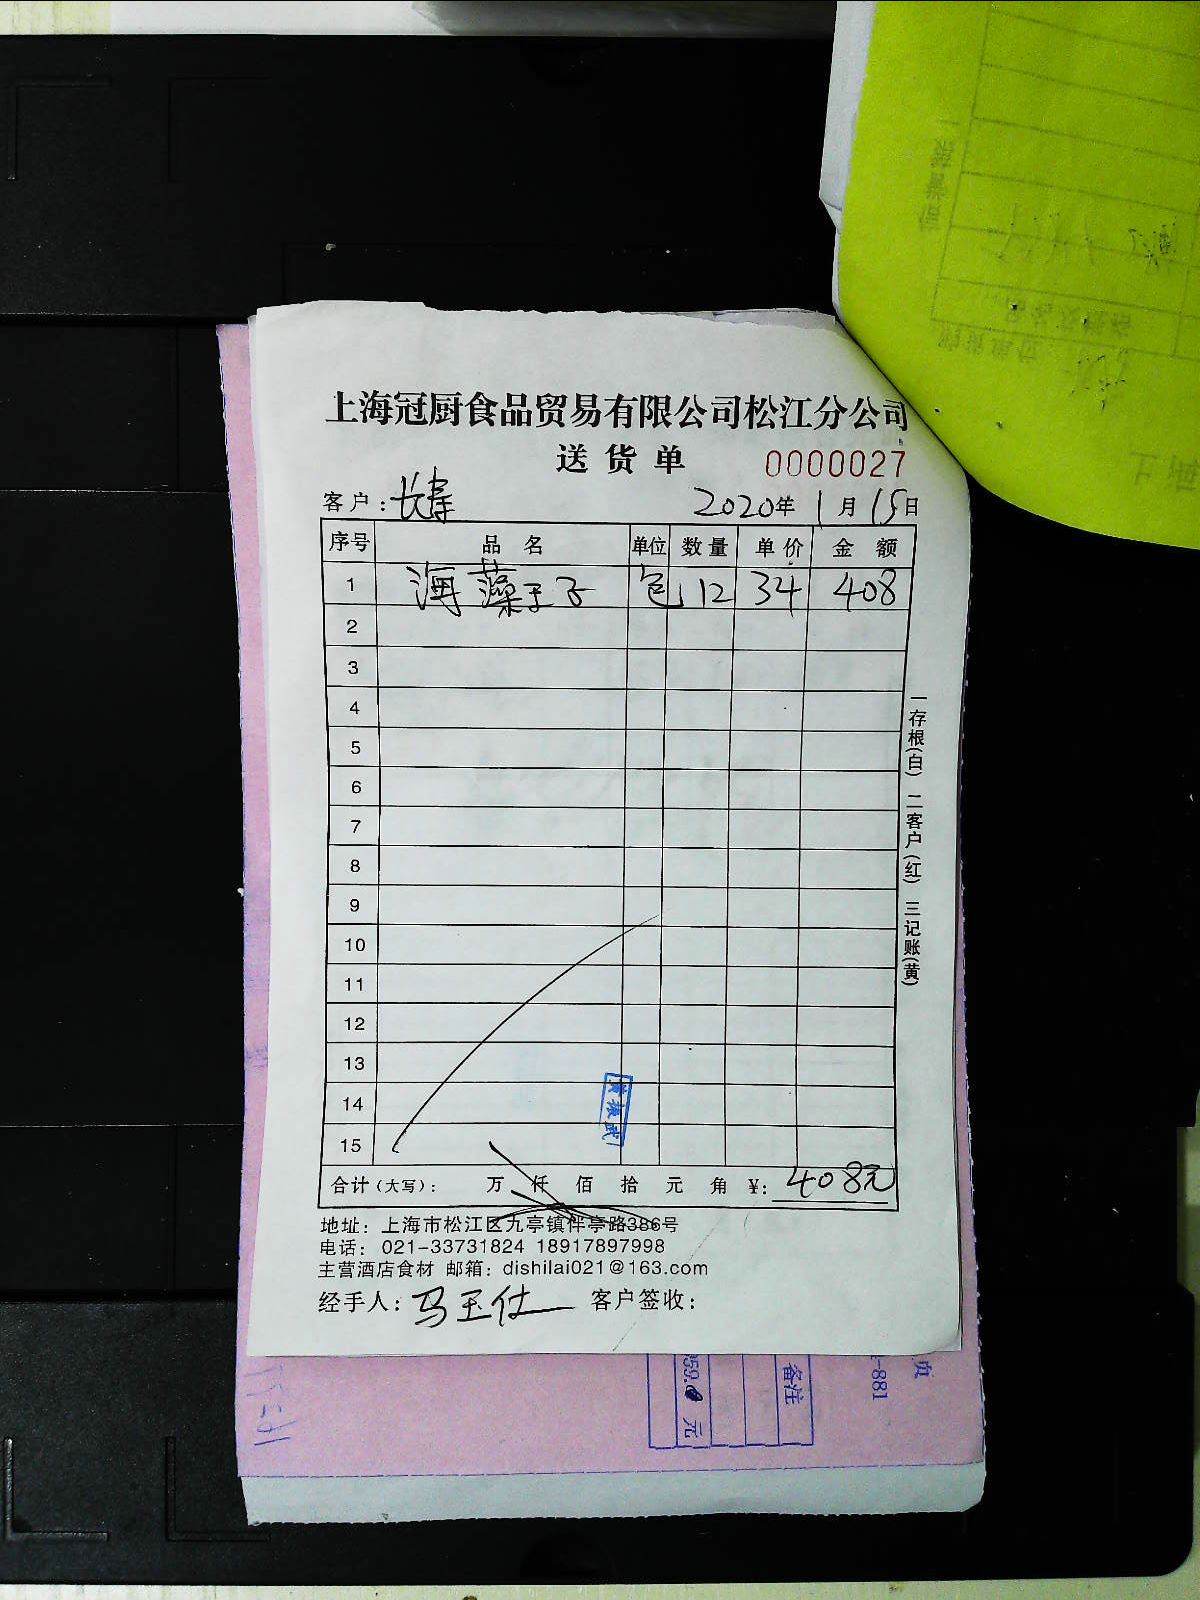 上海冠厨食品贸易有限公司松江分公司
送货单 0000027
客户:长寿 2020年1月15日
序号 品名 单位 数量 单价 金额
1 海藻王子 包 12 34 408
2
3
4
5
6
7
8
9
10
11
12
13
14
15
合计(大写): 万 仟 佰 拾 元 角 ¥: 408元
地址: 上海市松江区九亭镇伴亭路386号
电话: 021-33731824 18917897998
主营酒店食材 邮箱: dishilai021@163.com
经手人: 马玉仕 客户签收:
一存根(白) 二客户(红) 三记账(黄)
备注
元
-881
页
上海